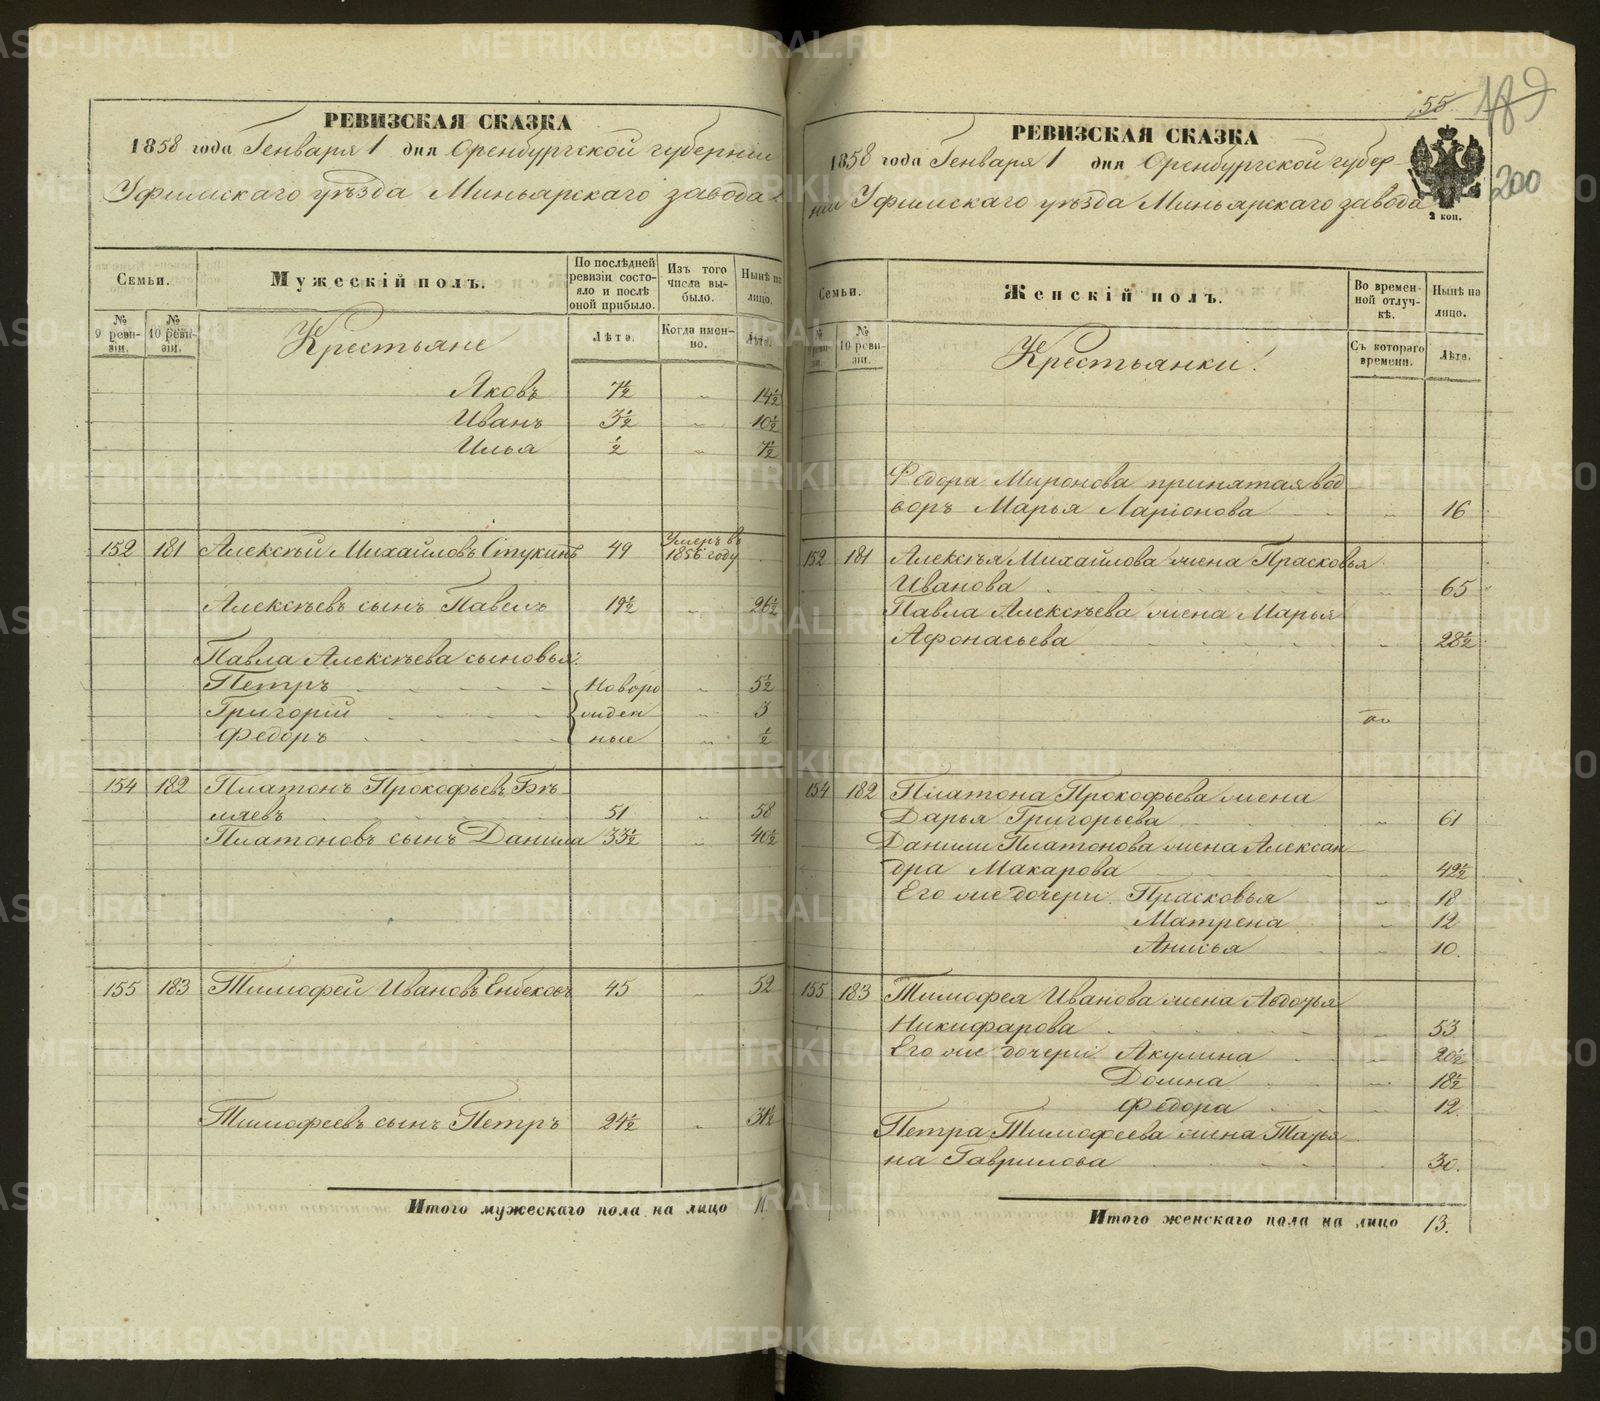 РЕВИЗСКАЯ СКАЗКА
1858 года Генваря 1 дня Оренбургской губернии
Уфимскаго уѣзда Миньярскаго завода
Семьи.
Мужескій полъ.
По послѣдней ревизіи состояло и послѣ оной прибыло.
Изъ того числа выбыло.
Нынѣ на лицо.
№ 9 ревизіи.
№ 10 ревизіи.
Крестьяне
Лѣта.
Когда именно.
Лѣта.
Яковъ 7½ „ 14½
Иванъ 3½ „ 10½
Илья ½ „ 7½
152 181 Алексѣй Михайловъ Стукинъ 49 Умеръ въ 1856 году
Алексѣевъ сынъ Павелъ 19½ „ 26½
Павла Алексѣева сыновья:
Петръ Новоро „ 5½
Григорій жден „ 3
Федоръ ные „ ½
154 182 Платонъ Прокофьевъ Бѣ-
ляевъ 51 „ 58
Платоновъ сынъ Данила 33½ „ 40½
155 183 Тимофей Ивановъ Енбековъ 45 „ 52
Тимофеевъ сынъ Петръ 24½ „ 31½
Итого мужескаго пола на лицо 11.
55
189
200
РЕВИЗСКАЯ СКАЗКА
1858 года Генваря 1 дня Оренбургской губер
ніи Уфимскаго уѣзда Миньярскаго завода
2 коп.
Семьи.
Женскій полъ.
Во временной отлучкѣ.
Нынѣ на лицо.
№ 9 ревизіи.
№ 10 ревизіи.
Крестьянки:
Съ котораго времени.
Лѣта.
Федора Миронова принятая во д
воръ Марья Ларіонова „ 16
152 181 Алексѣя Михайлова жена Прасковья
Иванова „ 65
Павла Алексѣева жена Марья
Афонасьева „ 28½
154 182 Платона Прокофьева жена
Дарья Григорьева „ 61
Данилы Платонова жена Алексан
дра Макарова „ 42½
Его же дочери: Прасковья „ 18
Матрена „ 12
Анисья „ 10.
155 183 Тимофея Иванова жена Авдотья
Никифарова „ 53
Его же дочери: Акулина „ 20½
Домна „ 18½
Федора „ 12.
Петра Тимофеева жена Татья
на Гаврилова „ 30.
Итого женскаго пола на лицо 13.
METRIKI.GASO-URAL.RU